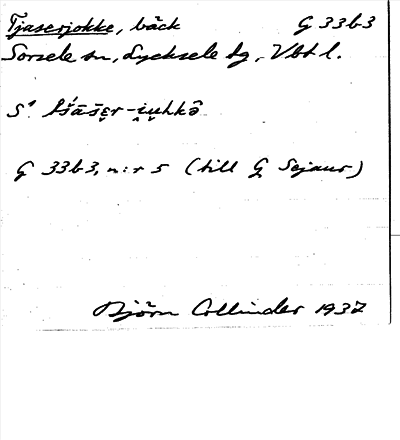 Tjaserjokke, bäck G 33b3
Sorsele sn, Lycksele tg, Vbt l.
G 33b3, n:r 5 (till G Sejaur)
Björn Collinder 1937